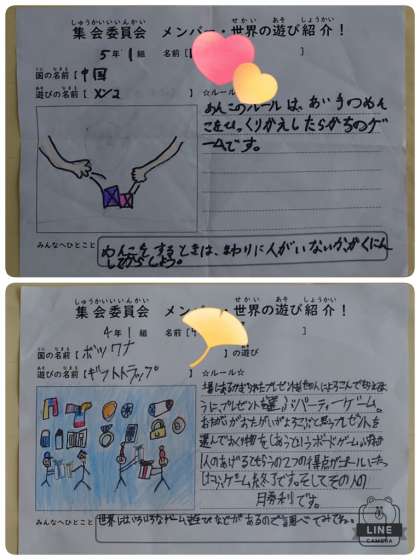 しゅうかいいいんかい せかい あそ しょうかい
集会委員会 メンバー・世界の遊び紹介！
5年1組 名前[ ]
くに なまえ
国の名前[中国
あそ なまえ
遊びの名前[メンコ
☆ルール☆
めんこのルールは、あいてのめん
こをひっくりかえしたらかちのゲ
ームです。
みんなへひとこと
めんこをするときは、まわりに人がいないかかくにん
してからしよう。
しゅうかいいいんかい せかい あそ しょうかい
集会委員会 メンバー・世界の遊び紹介！
4年1組 名前[
くに なまえ
国の名前[ボツワナ ]の遊び
あそ なまえ
遊びの名前[ギフトトラップ
☆ルール☆
うに、プレゼントを選ぶパーティーゲーム。
おたがいがおたがいがよろこびそうと思うプレゼントを
選んで
というボードゲーム。
1人のあげるともらうの2つの得点がゴールにたっ
けばゲーム終了です。そしてその人の
勝利です。
みんなへひとこと
世界にはいろいろなゲーム遊びなどがあるので調べてみてね。
LINE
CAMERA